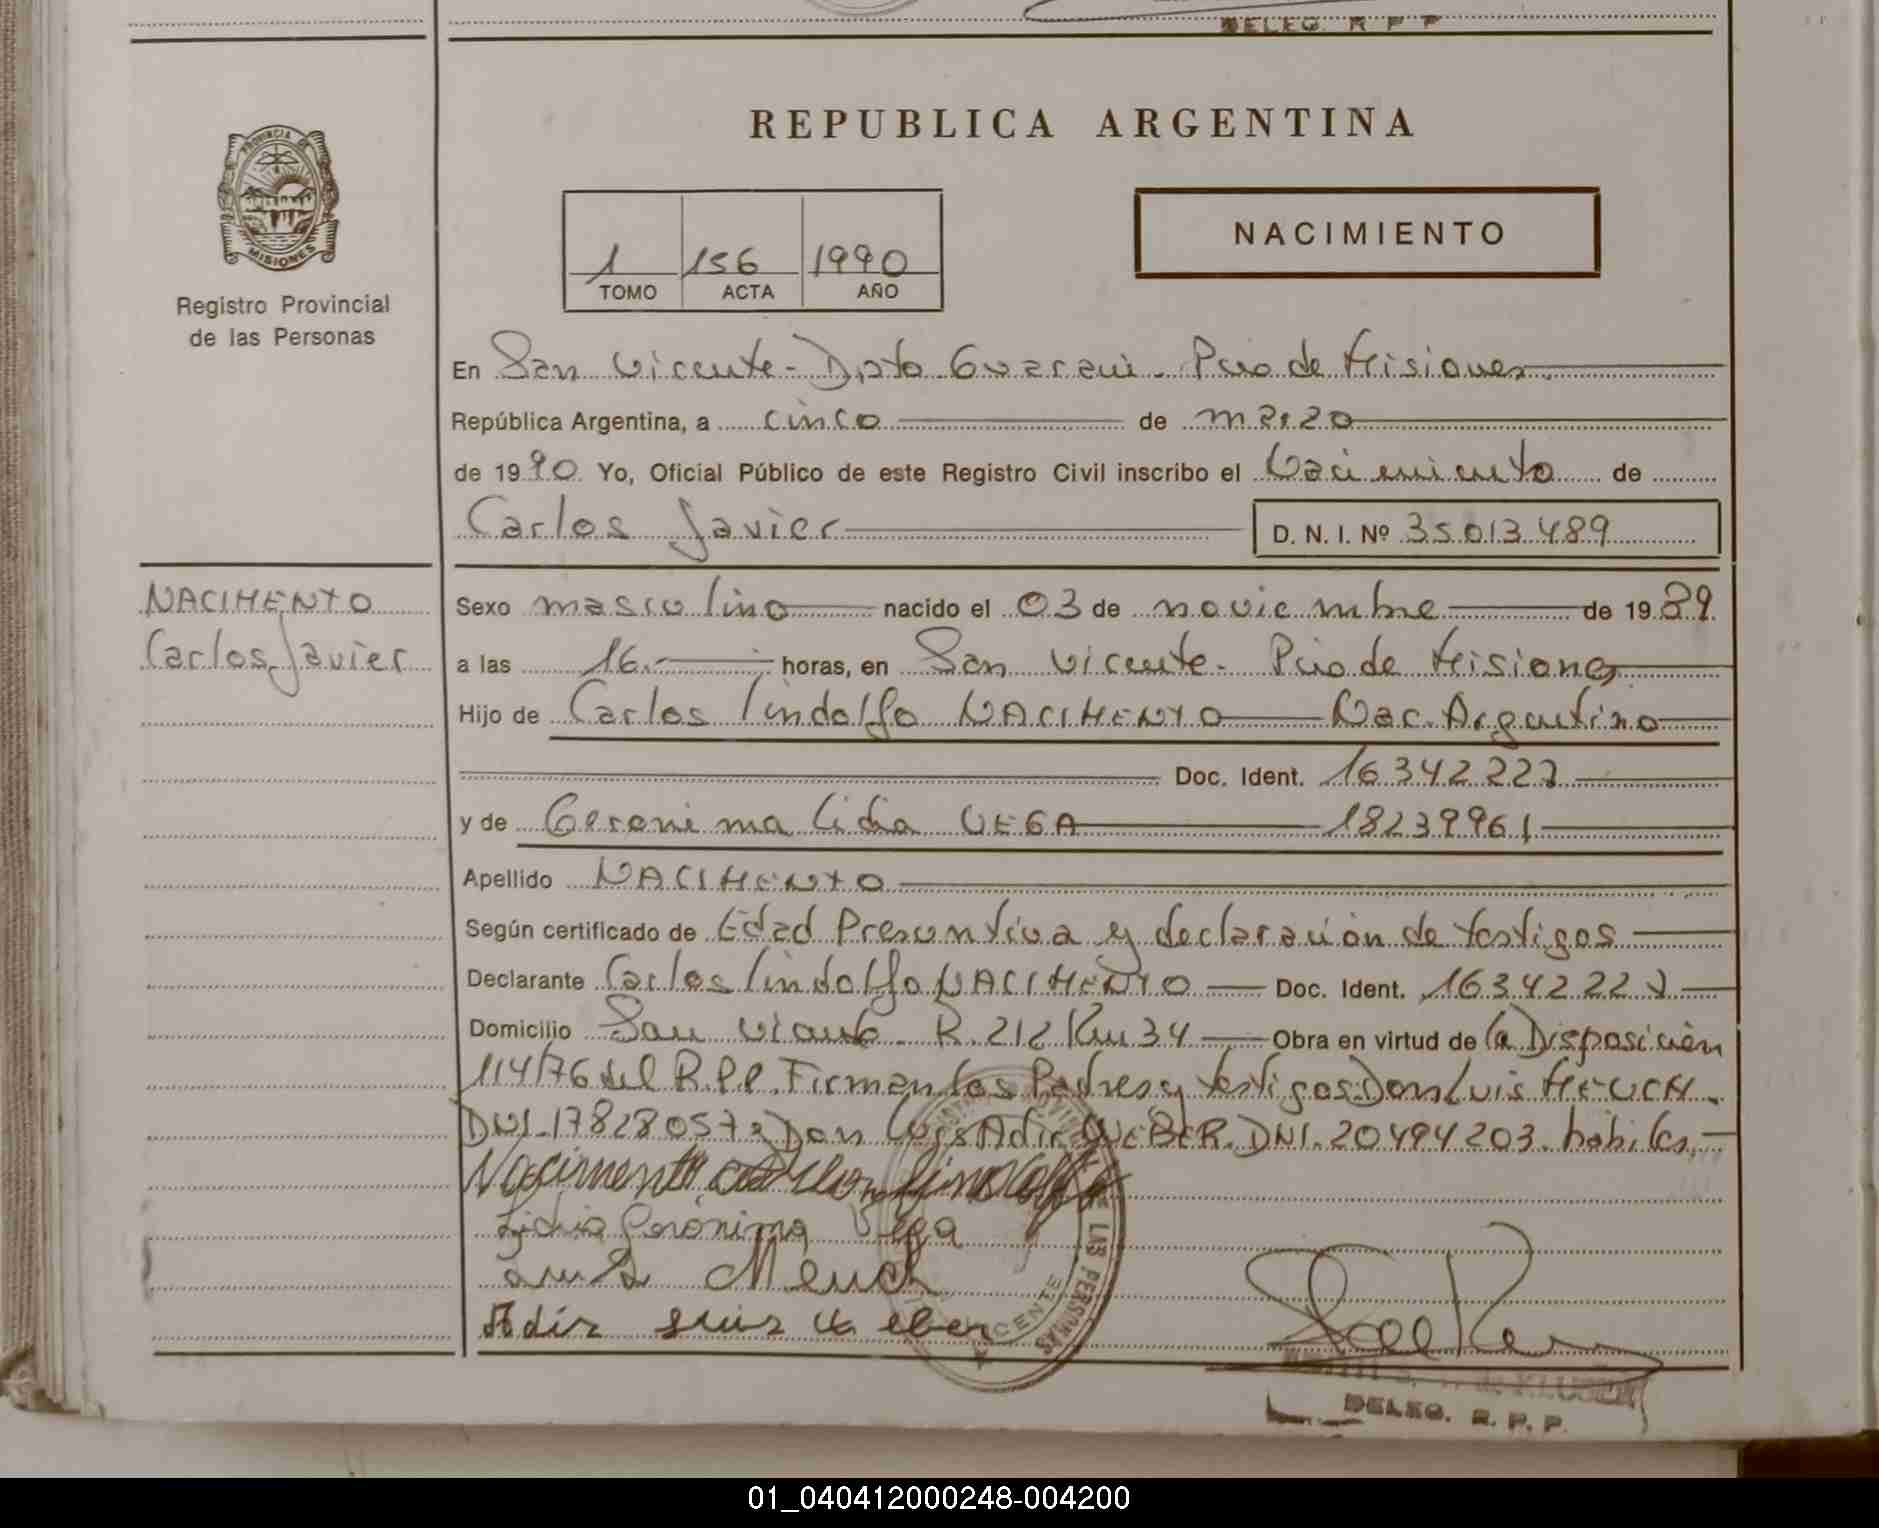 DELEG. R P P
REPUBLICA ARGENTINA
PROVINCIA DE
MISIONES
Registro Provincial
de las Personas
1 156 1990
TOMO ACTA AÑO
NACIMIENTO
En San Vicente - Dpto Guarani. Pcia de Misiones.
República Argentina, a cinco de marzo
de 1990 Yo, Oficial Público de este Registro Civil inscribo el Nacimiento de
Carlos Javier D. N. I. Nº 35.013.489
NACIMENTO
Carlos Javier
Sexo masculino nacido el 03 de noviembre de 1989
a las 16.- horas, en San Vicente - Pcia de Misiones
Hijo de Carlos lindolfo NACIMENTO Nac. Argentino
Doc. Ident. 16.342.227
y de Geronima lidia VEGA 18239961
Apellido NACIMENTO
Según certificado de Edad Presuntiva y declaración de testigos
Declarante Carlos lindolfo NACIMENTO Doc. Ident. 16342227
Domicilio San Vicente - R. 212 Km 34 Obra en virtud de la Disposición
114/76 del R.P.P. Firman los Padres y testigos Don Luis MEUCH.
DNI. 17828057 y Don Luis Adir WEBER. DNI. 20494203. habiles.
Nacimento Carlos lindolfo
Lidia Gerónima Vega
Luis Meuch
Adir Luiz Weber
DE LAS PERSONAS
VICENTE
de KLUSEN
DELEG. R. P. P.
01_040412000248-004200